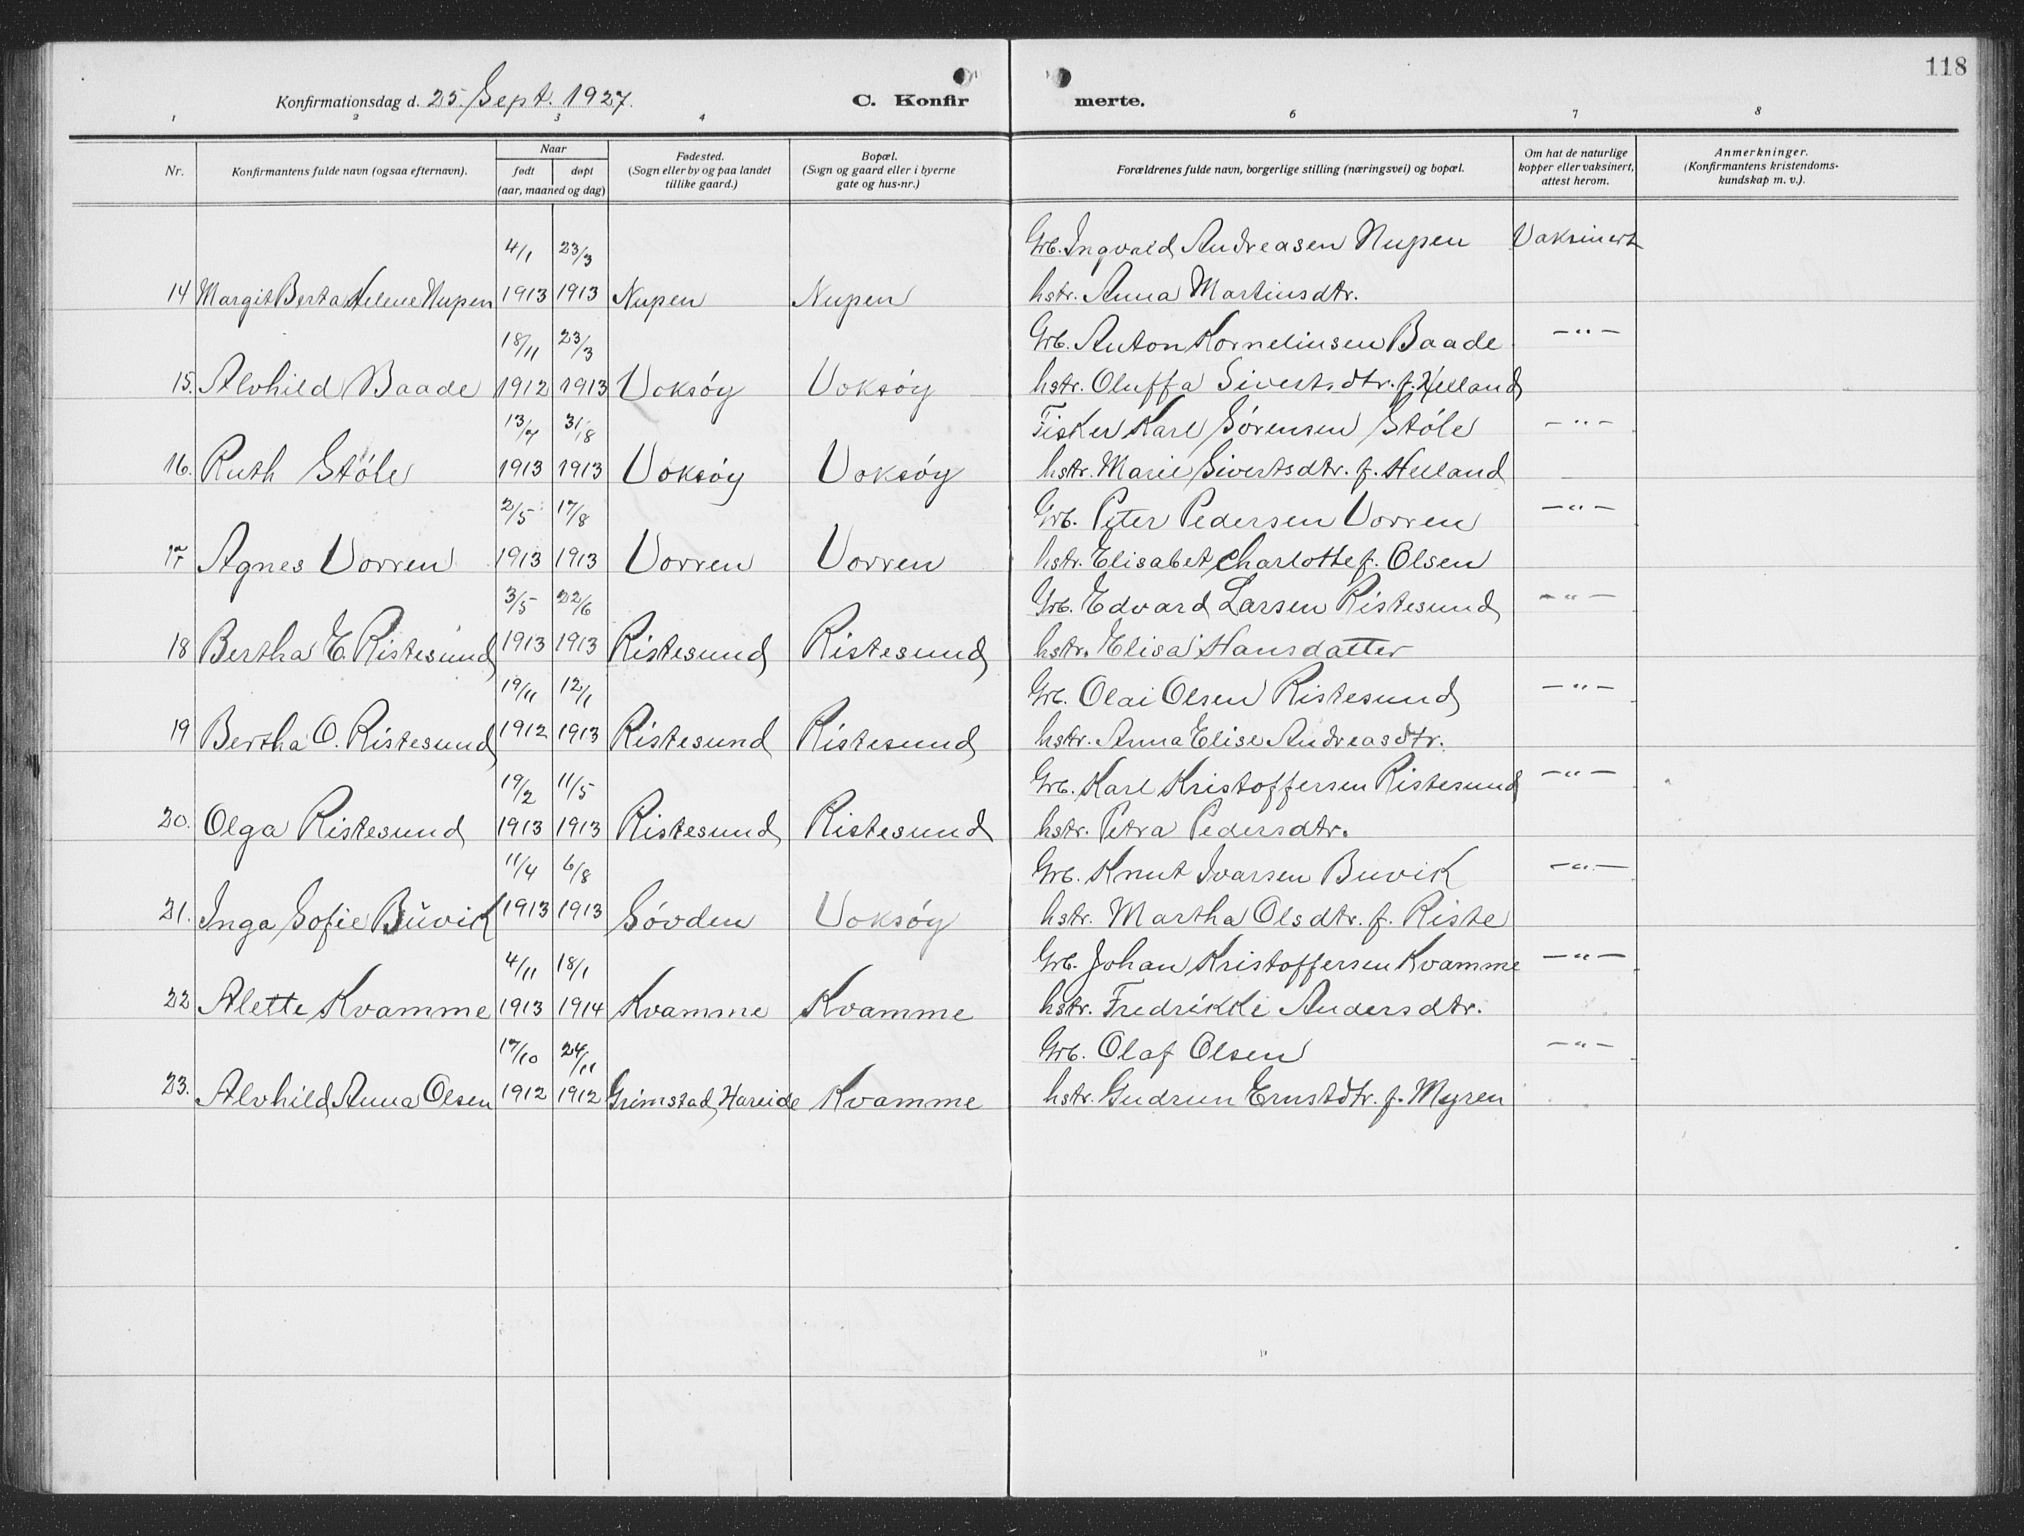 118
Konfirmationsdag d. 25. Sept. 1927.
C. Konfir merte.
1 2 3 4 6 7 8
Nr.
Konfirmantens fulde navn (ogsaa efternavn).
Naar
født døpt
(aar, maaned og dag)
Fødested.
(Sogn eller by og paa landet
tillike gaard.)
Bopæl.
(Sogn og gaard eller i byerne
gate og hus-nr.)
Forældrenes fulde navn, borgerlige stilling (næringsvei) og bopæl.
Om hat de naturlige
kopper eller vaksinert,
attest herom.
Anmerkninger.
(Konfirmantens kristendoms-
kundskap m. v.).
4/1 23/3 Grb. Ingvald Andreasen Nupen Vaksinert
14 Margit Berta Helene Nupen 1913 1913 Nupen Nupen hstr. Anna Martinsdtr.
18/11 23/3 Grb. Anton Korneliusen Baade —"—
15. Alvhild Baade 1912 1913 Voksøy Voksøy hstr. Oluffa Sivertsdtr. f. Helland
13/7 31/8 Fisker Karl Sørensen Støle —"—
16. Ruth Støle 1913 1913 Voksøy Voksøy hstr. Marie Sivertsdtr. f. Helland
2/5 17/8 Grb. Peter Pedersen Vorren —"—
17 Agnes Vorren 1913 1913 Vorren Vorren hstr. Elisabet Charlotte f. Olsen
3/5 22/6 Grb. Edvard Larsen Ristesund —"—
18 Bertha E. Ristesund 1913 1913 Ristesund Ristesund hstr. Elisa Hansdatter
19/11 12/1 Grb. Olai Olsen Ristesund —"—
19 Bertha O. Ristesund 1912 1913 Ristesund Ristesund hstr. Anna Elise Andreasdtr.
19/2 11/5 Grb. Karl Kristoffersen Ristesund —"—
20. Olga Ristesund 1913 1913 Ristesund Ristesund hstr. Petra Pedersdtr.
11/4 6/8 Grb. Knut Ivarsen Buvik —"—
21. Inga Sofie Bŭvik 1913 1913 Søvden Voksøy hstr. Martha Olsdtr. f. Riste
4/11 18/1 Grb. Johan Kristoffersen Kvamme —"—
22 Alette Kvamme 1913 1914 Kvamme Kvamme hstr. Fredrikke Andersdtr.
17/10 24/11 Grb. Olaf Olsen —"—
23. Alvhild Anna Olsen 1912 1912 Grimstad, Hareide Kvamme hstr. Gudrun Ernstdtr. f. Myren